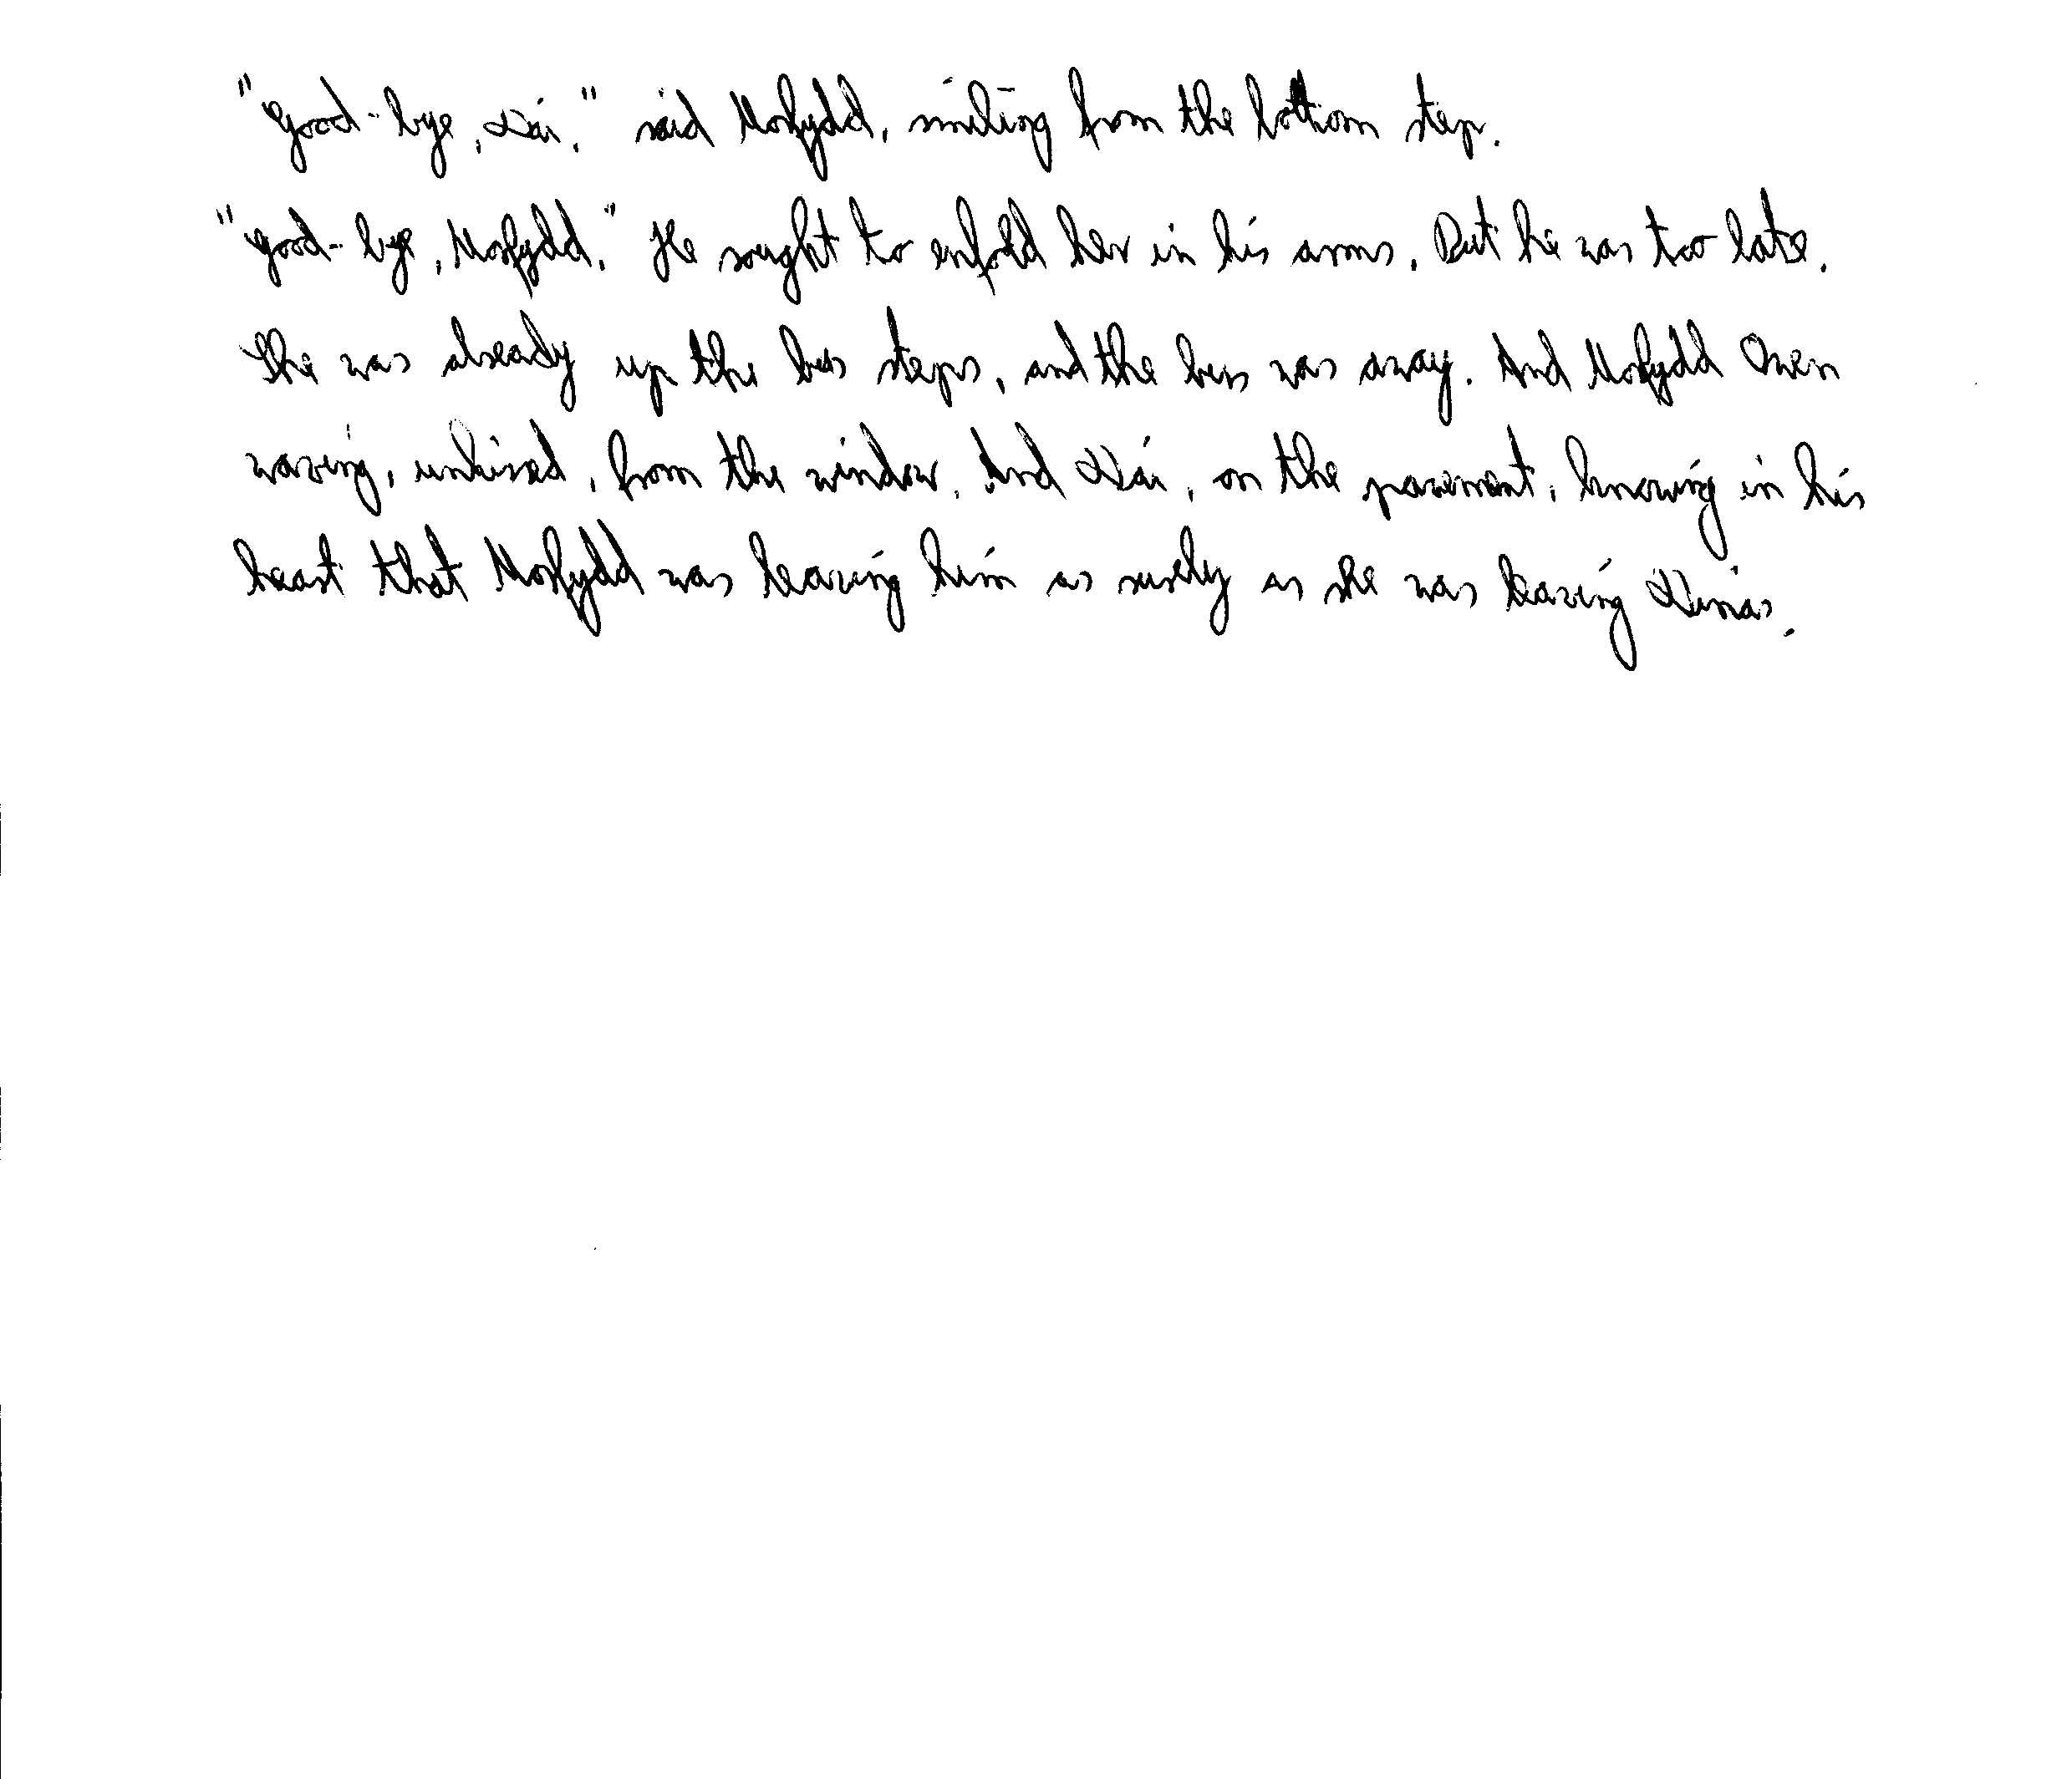 "Good-bye, Dai," said Morfydd, smiling from the bottom step.
"Good-bye, Morfydd." He sought to enfold her in his arms. But he was too late.
She was already up the bus steps, and the bus was away. And Morfydd Owen
waving, unkissed, from the window. And Dai, on the pavement, knowing in his
heart that Morfydd was leaving him as surely as she was leaving Dinas.